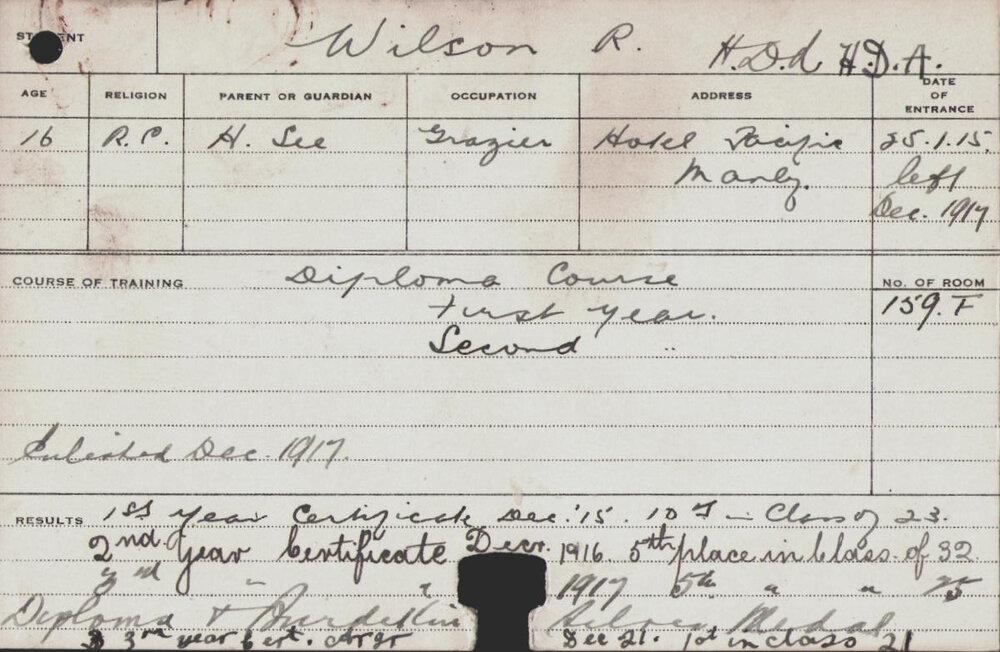 STUDENT Wilson R. H.D.d H.D.A.
AGE RELIGION PARENT OR GUARDIAN OCCUPATION ADDRESS DATE OF ENTRANCE
16 R.C. H. See Grazier Hotel Pacific 25.1.15.
Manly. left
Dec. 1917
COURSE OF TRAINING Diploma Course No. OF ROOM
First Year. 159. F
Second "
Enlisted Dec. 1917.
RESULTS 1st Year Certificate Dec. '15. 10th in Class of 23.
2nd. year Certificate Decr. 1916 5th place in Class of 32
3rd " " 1917 5th " " 25
Diploma & Burdekin Silver Medal
3rd year Cert. Dec 21. 1st in class 21